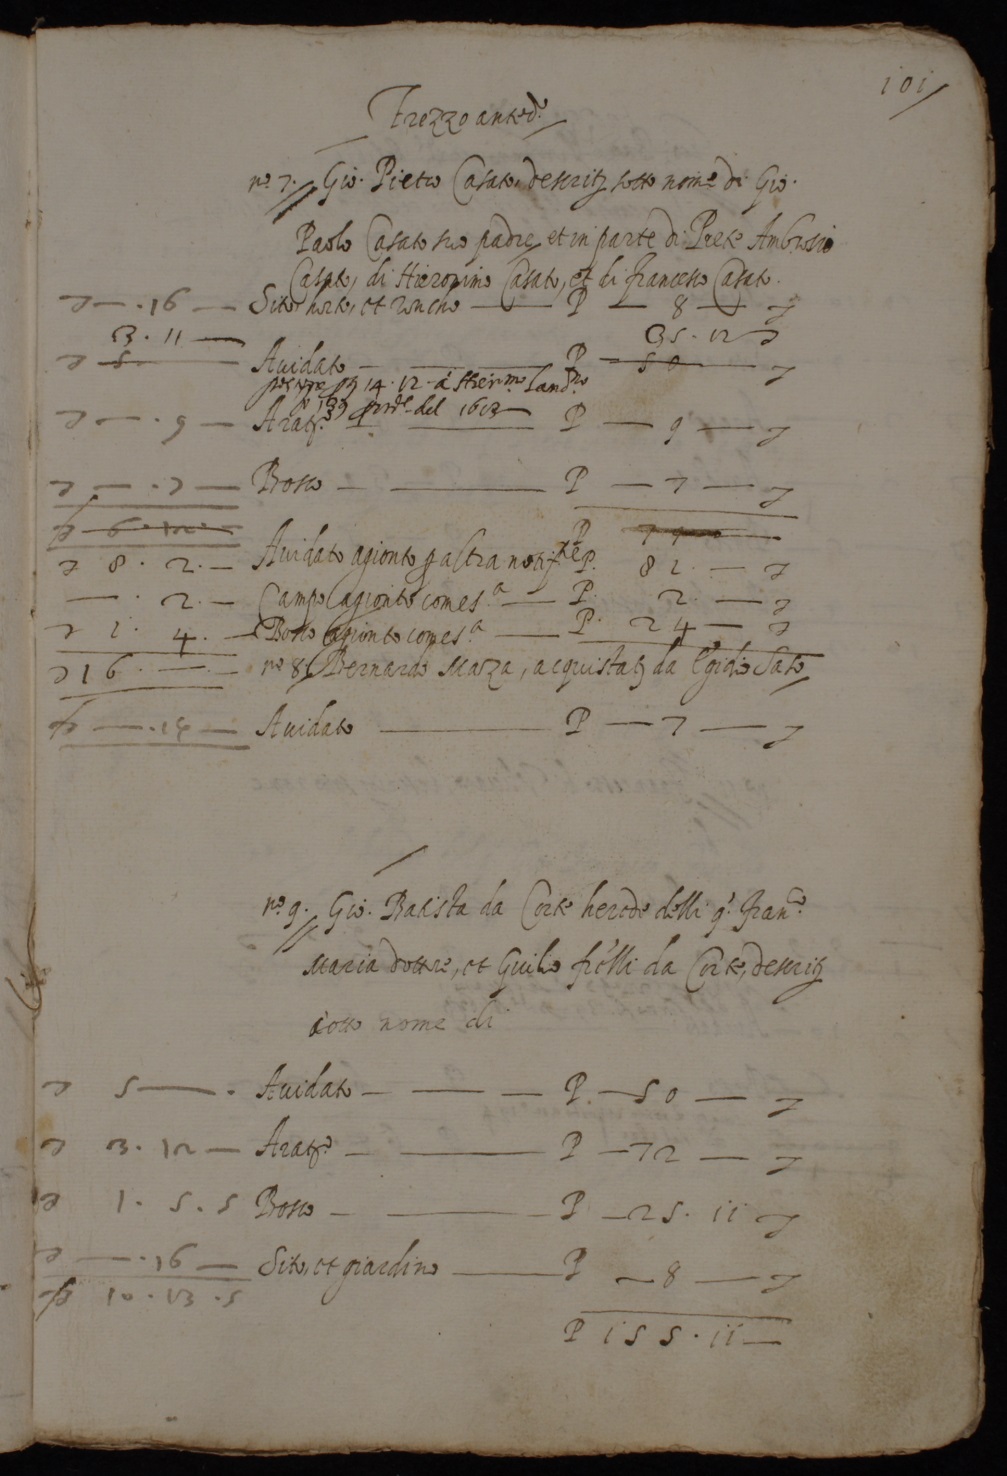 101
Trezzo anted.o
n.o 7. Gio. Pietro Casato, descritto sotto nome di Gio.
Paolo Casato suo padre et in parte di Prete Ambrosio
Casato, di Hieronimo Casato, et di Francesco Casato.
— . 16 — Sito, horto, et roncho — P — 8 —
3 . 11 — 35 . 12
5 — Auidato — P — 50 —
14 . 12 . à Hier.mo
del 1613
— . 9 — Arat.o — P — 9 —
— . 7 — Bosco — P — 7 —
P
8 . 2 . — Auidato agionto p altra notif.ne P. 81 . —
— . 2 . — Campo agionto come s.a — P. 2 . —
1 . 4 . — Bosco agionto come s.a — P. 24 —
16 . — n.o 8. Bernardo Mazza, acquistato da
— . 14 — Auidato — P — 7 —
n.o 9. Gio. Batista da Corte herede delli q. Fran.co
Maria dottore, et Guido fr'elli da Corte, descritto
sotto nome di
5 — . Auidato — P. — 50 —
3 . 12 — Arat.o — P — 72 —
1 . 5 . 5 Bosco — P — 25 . 11
— . 16 — Sito, et giardino — P — 8 —
10 . 13 . 5
P 155 . 11 —